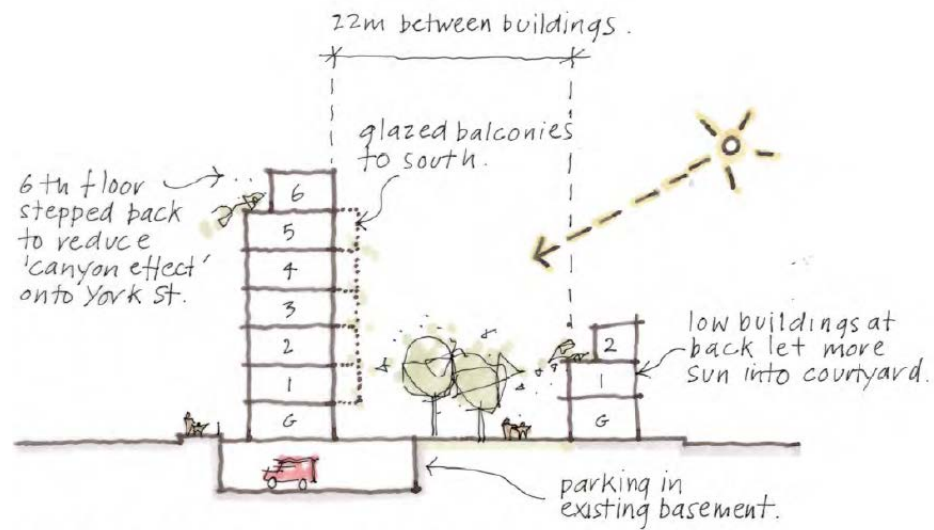 22m between buildings.
glazed balconies
to south.
6th floor
stepped back
to reduce
'canyon effect'
onto York St.
6
5
4
3
2
1
G
2
1
G
low buildings at
back let more
sun into courtyard.
parking in
existing basement.